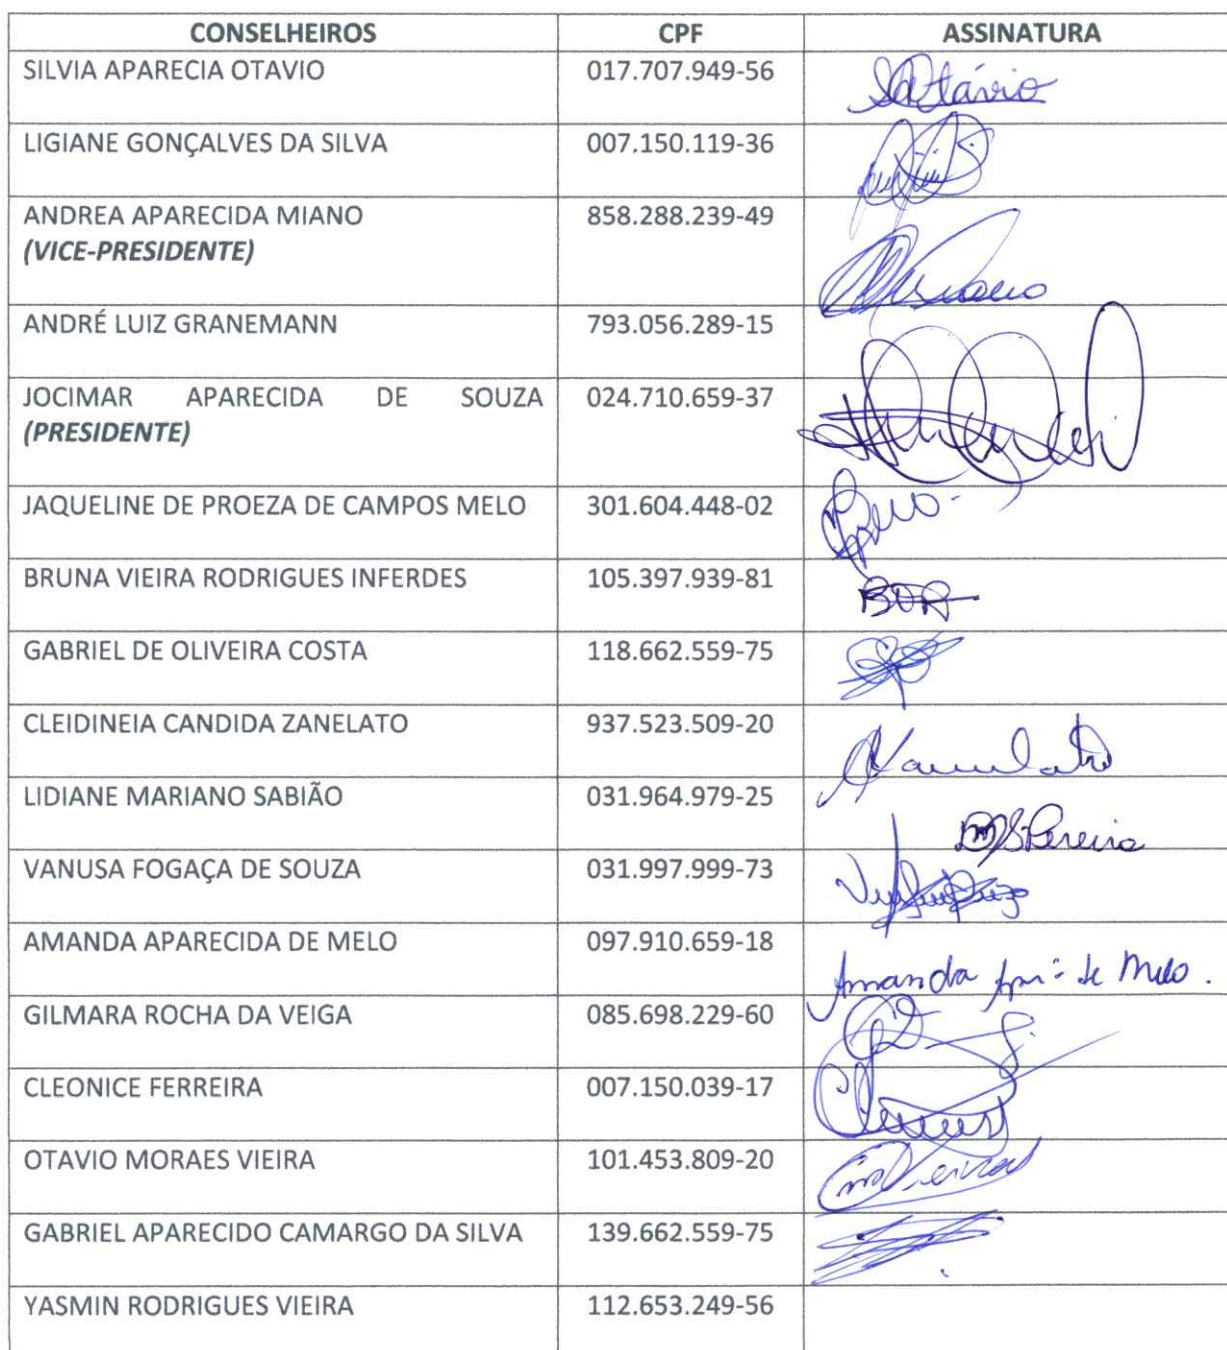 CONSELHEIROS CPF ASSINATURA
SILVIA APARECIA OTAVIO 017.707.949-56 Otávio
LIGIANE GONÇALVES DA SILVA 007.150.119-36
ANDREA APARECIDA MIANO 858.288.239-49
(VICE-PRESIDENTE)
ANDRÉ LUIZ GRANEMANN 793.056.289-15
JOCIMAR APARECIDA DE SOUZA 024.710.659-37
(PRESIDENTE)
JAQUELINE DE PROEZA DE CAMPOS MELO 301.604.448-02
BRUNA VIEIRA RODRIGUES INFERDES 105.397.939-81
GABRIEL DE OLIVEIRA COSTA 118.662.559-75
CLEIDINEIA CANDIDA ZANELATO 937.523.509-20
LIDIANE MARIANO SABIÃO 031.964.979-25
Pereira
VANUSA FOGAÇA DE SOUZA 031.997.999-73
AMANDA APARECIDA DE MELO 097.910.659-18
Amanda de Melo.
GILMARA ROCHA DA VEIGA 085.698.229-60
CLEONICE FERREIRA 007.150.039-17
OTAVIO MORAES VIEIRA 101.453.809-20
GABRIEL APARECIDO CAMARGO DA SILVA 139.662.559-75
YASMIN RODRIGUES VIEIRA 112.653.249-56